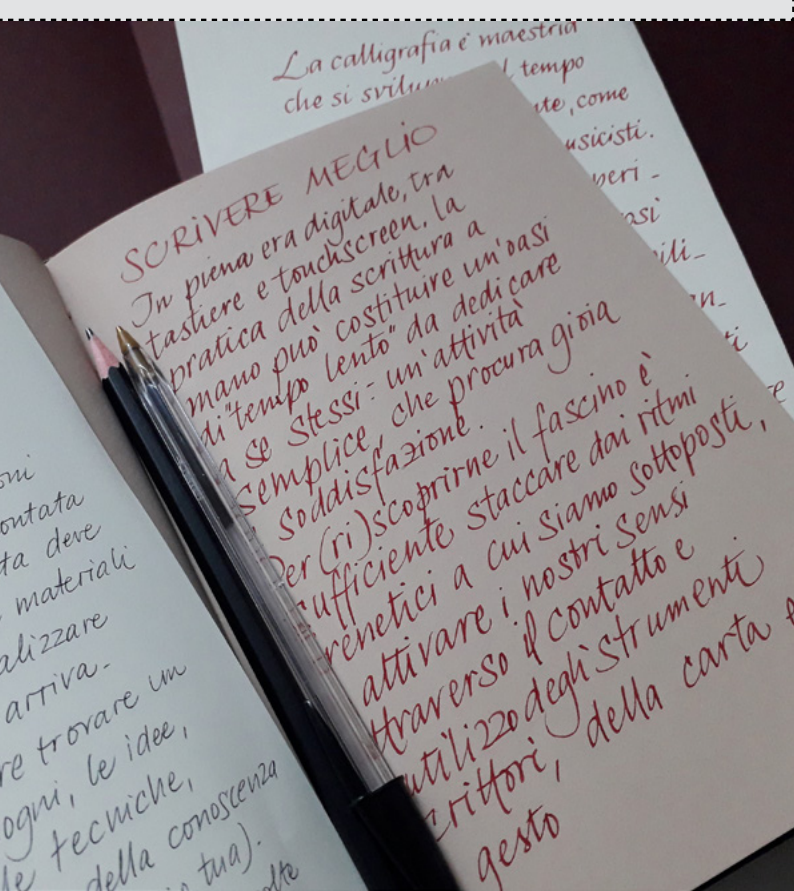 La calligrafia è maestria
che si tempo
come
musicisti.
SCRIVERE MEGLIO
In piena era digitale, tra
tastiere e touchscreen, la
pratica della scrittura a
mano può costituire un'oasi
di "tempo lento" da dedicare
a se stessi: un'attività
semplice, che procura gioia
soddisfazione.
Per (ri)scoprirne il fascino è
sufficiente staccare dai ritmi
frenetici a cui siamo sottoposti,
attivare i nostri sensi
attraverso il contatto e
utilizzo degli strumenti
scrittori, della carta e
gesto
deve
materiali
arriva.
trovare un
le idee,
tecniche,
della conoscenza
tua).